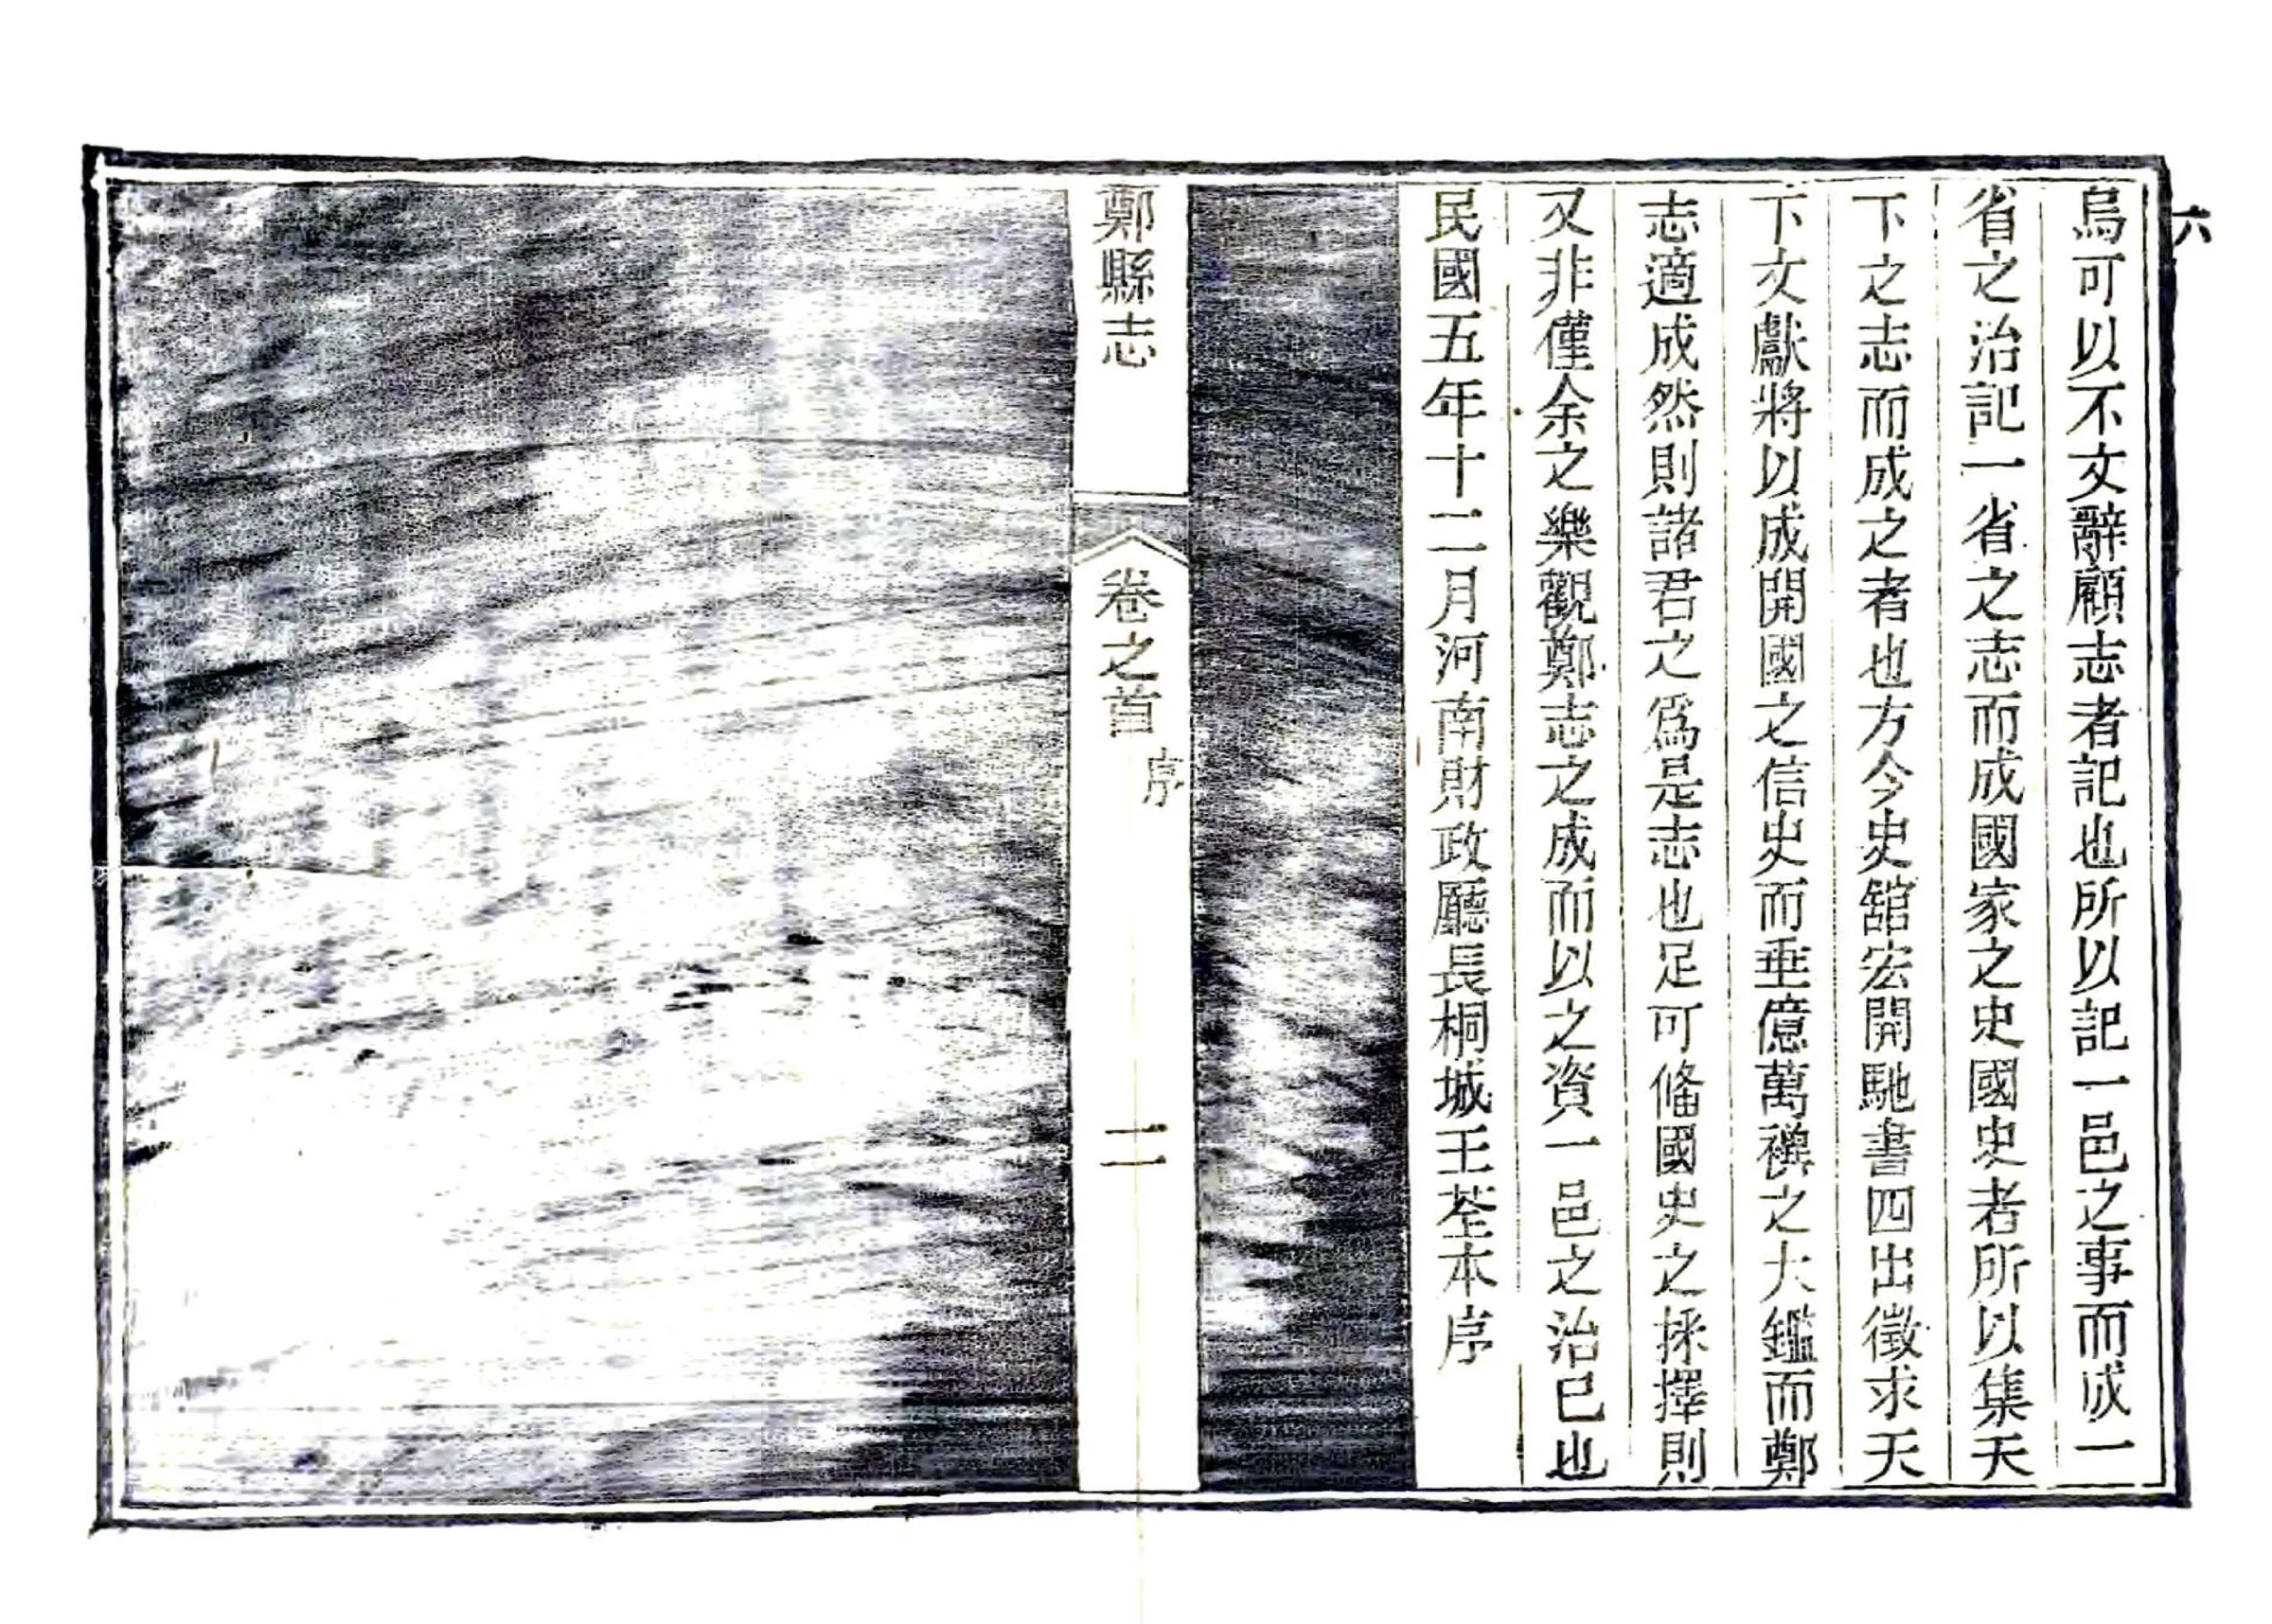 六
烏可以不文辭顧志者記也所以記一邑之事而成一
省之治記一省之志而成國家之史國史者所以集天
下之志而成之者也方今史舘宏開馳書四出徵求天
下文獻將以成開國之信史而垂億萬禩之大鑑而鄭
志適成然則諸君之爲是志也足可偹國史之採擇則
又非僅余之樂觀鄭志之成而以之資一邑之治已也
民國五年十二月河南財政廳長桐城王荃本序
鄭縣志
卷之首
序
二